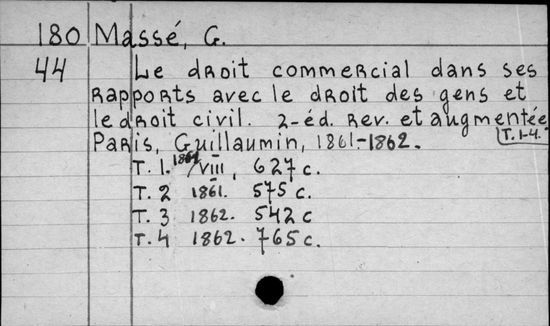 180 Massé, G.
44 Le droit commercial dans ses
rapports avec le droit des gens et
le droit civil. 2-éd. Rev. et augmentée
Paris, Guillaumin, 1861-1862. T. 1-4.
T. 1. 1861/VIII, 627 c.
T. 2 1861. 575 c.
T. 3 1862. 542 c
T. 4 1862. 765 c.